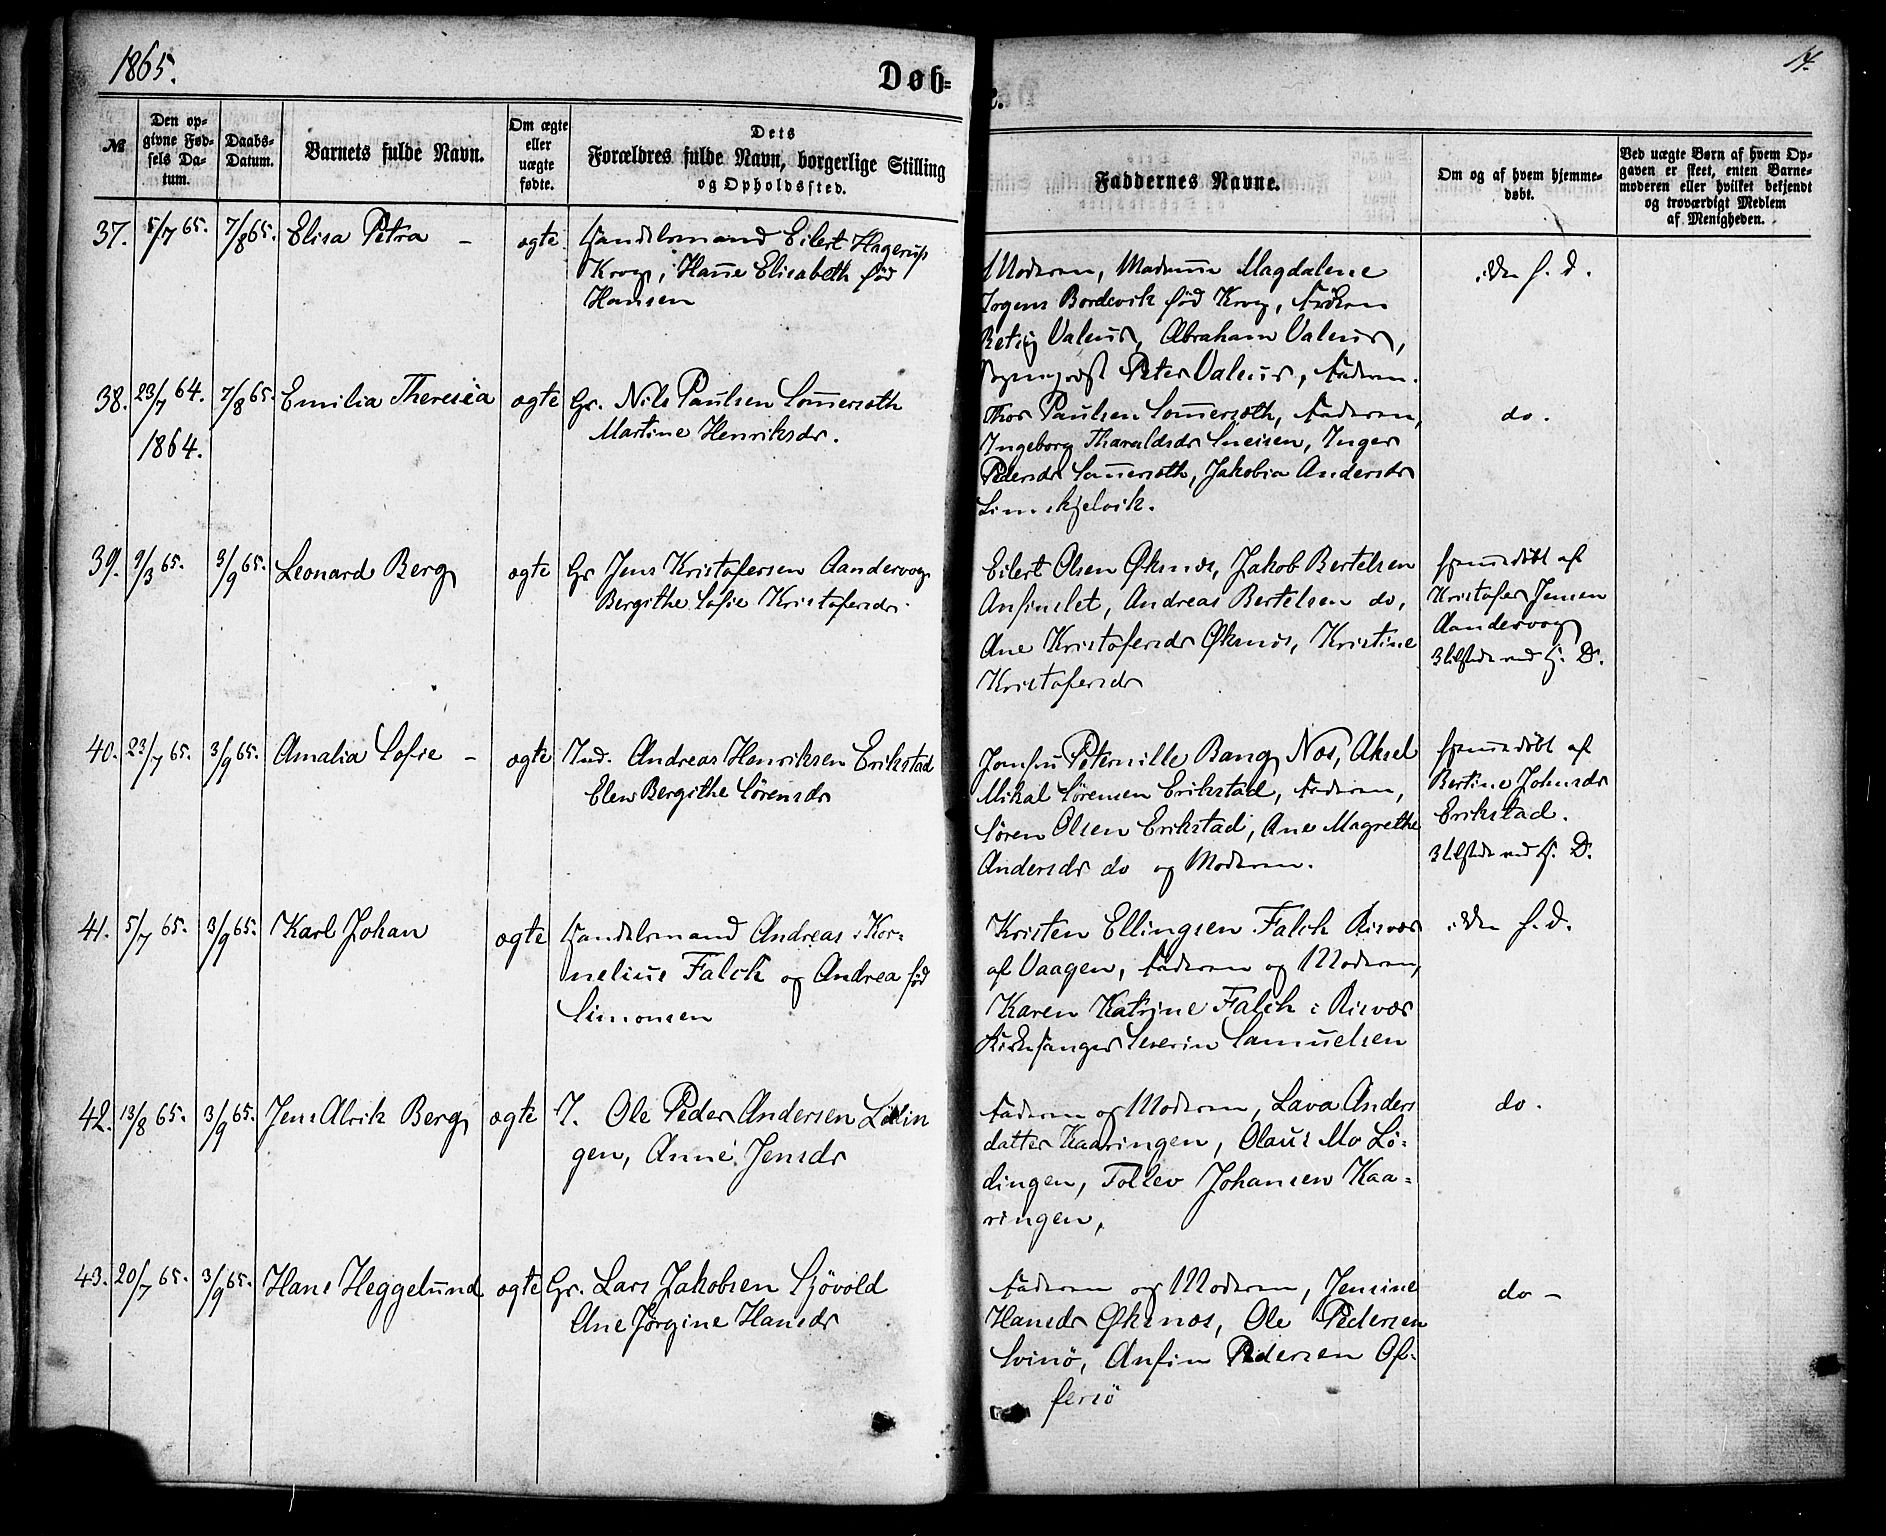 1865.
Døb=
14.
№
Den op=
givne Fød=
sels Da=
tum.
Daabs=
Datum.
Barnets fulde Navn.
Om ægte
eller
uægte
fødte.
Dets
Forældres fulde Navn, borgerlige Stilling
og Opholdssted.
Faddernes Navne.
Om og af hvem hjemme=
døbt.
Ved uægte Børn af hvem Op=
gaven er skeet, enten Barne=
moderen eller hvilket bekjendt
og troværdigt Medlem
af Menigheden.
37. 5/7 65. 7/8 65. Elisa Petra – ægte Handelsmand Eilert Hagerup
Krog, Hanne Elisabeth fød
Hansen
Moderen, Madamme Magdalene
Bordevik fød Krog, Frøken
Valeur, Abraham Valeur,
Peter Valeur, Faderen.
ikke h. d.
38. 23/7 64. 7/8 65. Emilia Theresia ægte Gr. Nils Paulsen Sommersæth
1864. Martine Henriksdr.
Thor Paulsen Sommersæth, Faderen,
Ingeborg Tharaldsdr Sneisen, Inger
Pedersdr Sommersæth, Jakobia Andersdr
Simskjelvik.
do.
39. 9/3 65. 3/9 65. Leonard Berg ægte Gr Jens Kristofersen Aandervog
Bergithe Sofie Kristofersdr.
Eilert Olsen Øksnæs, Jakob Bertelsen
Anfinslet, Andreas Bertelsen do,
Ane Kristofersdr Øksnæs, Kristine
Kristofersdr
hjemmedøbt af
Kristofer Jensen
Aandervog
3 tilstede ved Hj. D.
40. 23/7 65. 3/9 65. Amalia Sofie – ægte Ind. Andreas Henriksen Erikstad
Elen Bergithe Sørensdr
Jomfru Peternille Bang Næs, Aksel
Mikal Sørensen Erikstad, Faderen,
Søren Olsen Erikstad, Ane Magrethe
Andersdr do og Moderen.
hjemmedøbt af
Bertine Johnsdr
Erikstad.
3 tilstede ved Hj. D.
41. 5/7 65. 3/9 65. Karl Johan ægte Handelsmand Andreas Kor=
nelius Falck og Andrea fød
Simonsen
Kristen Ellingsen Falch Risvær
af Vaagen, Faderen og Moderen,
Karen Katrine Falch i Risvær
Kirkesanger Severin Samuelsen
ikke h. d.
42. 13/8 65. 3/9 65. Jens Alrik Berg ægte I. Ole Peder Andersen Lødin
gen, Anne Jensdr
Faderen og Moderen, Lava Anders
datter Kaaringen, Olaus Mo Lø=
dingen, Tollev Johansen Kaa=
ringen,
do.
43. 20/7 65. 3/9 65. Hans Heggelund ægte Gr. Lars Jakobsen Sjøvold
Ane Jørgine Hansdr
Faderen og Moderen, Jensine
Hansdr Øksnæs, Ole Pedersen
Svinø, Anfin Pedersen Of=
fersø
do –